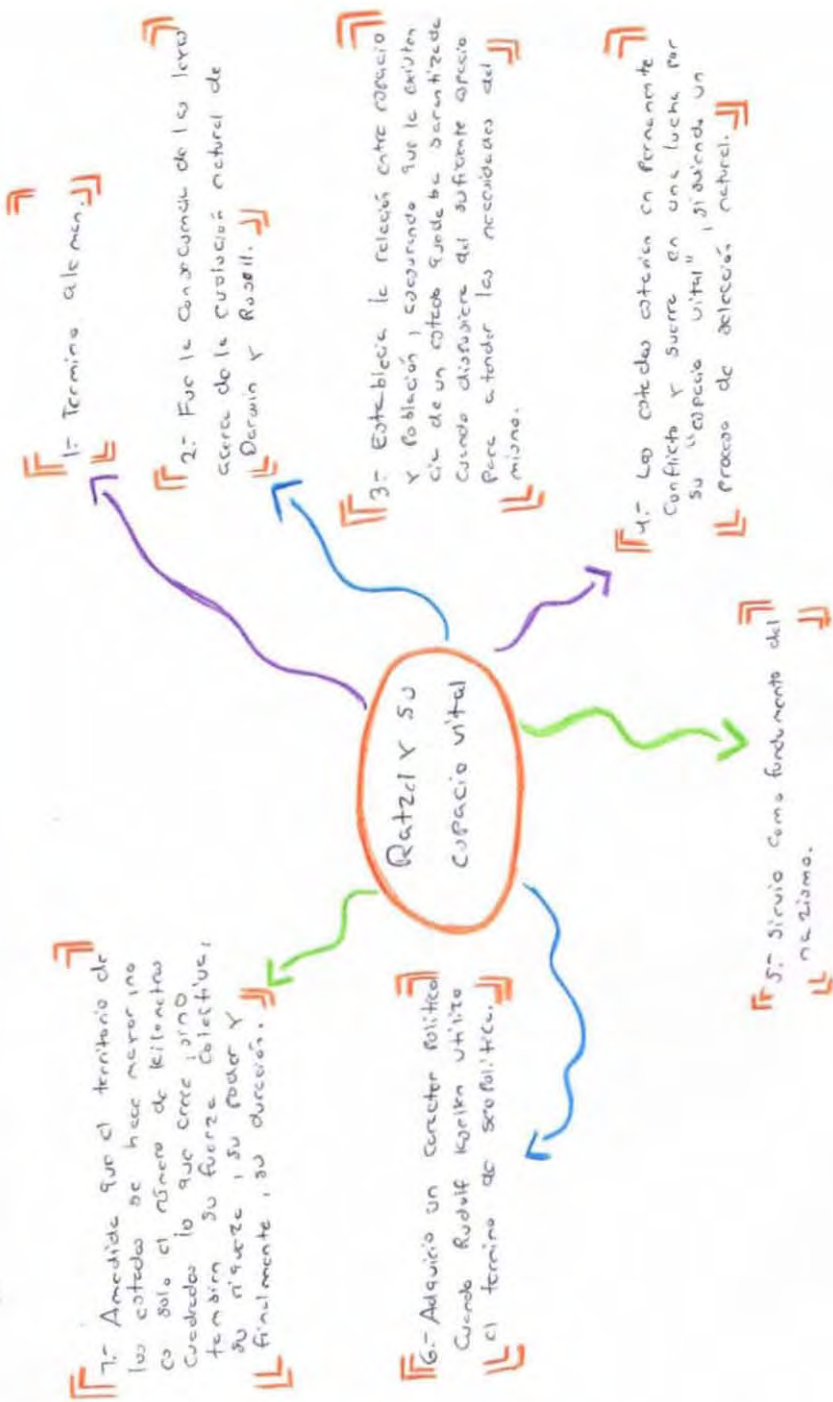 Ratzel y su
espacio vital
1.- Termino aleman.
2.- Fue la consecuencia de las leyes
acerca de la evolución natural de
Darwin y Rusell.
3.- Establecia la relación entre espacio
y población, asegurando que la existen
cia de un estado quedaba garantizada
cuando dispusiera del suficiente espacio
para atender las necesidades del
mismo.
4.- Los estados estarian en permanente
conflicto y guerra en una lucha por
su "espacio vital", siguiendo un
proceso de selección natural.
5.- Sirvio como fundamento del
nazismo.
6.- Adquirio un caracter politico
cuando Rudolf Kjellen utilizo
el termino de geopolitica.
7.- Amedida que el territorio de
los estados se hace mayor, no
es solo el número de kilometros
cuadrados lo que crece, sino
tambien su fuerza colectiva,
su riqueza, su poder y
finalmente, su duración.